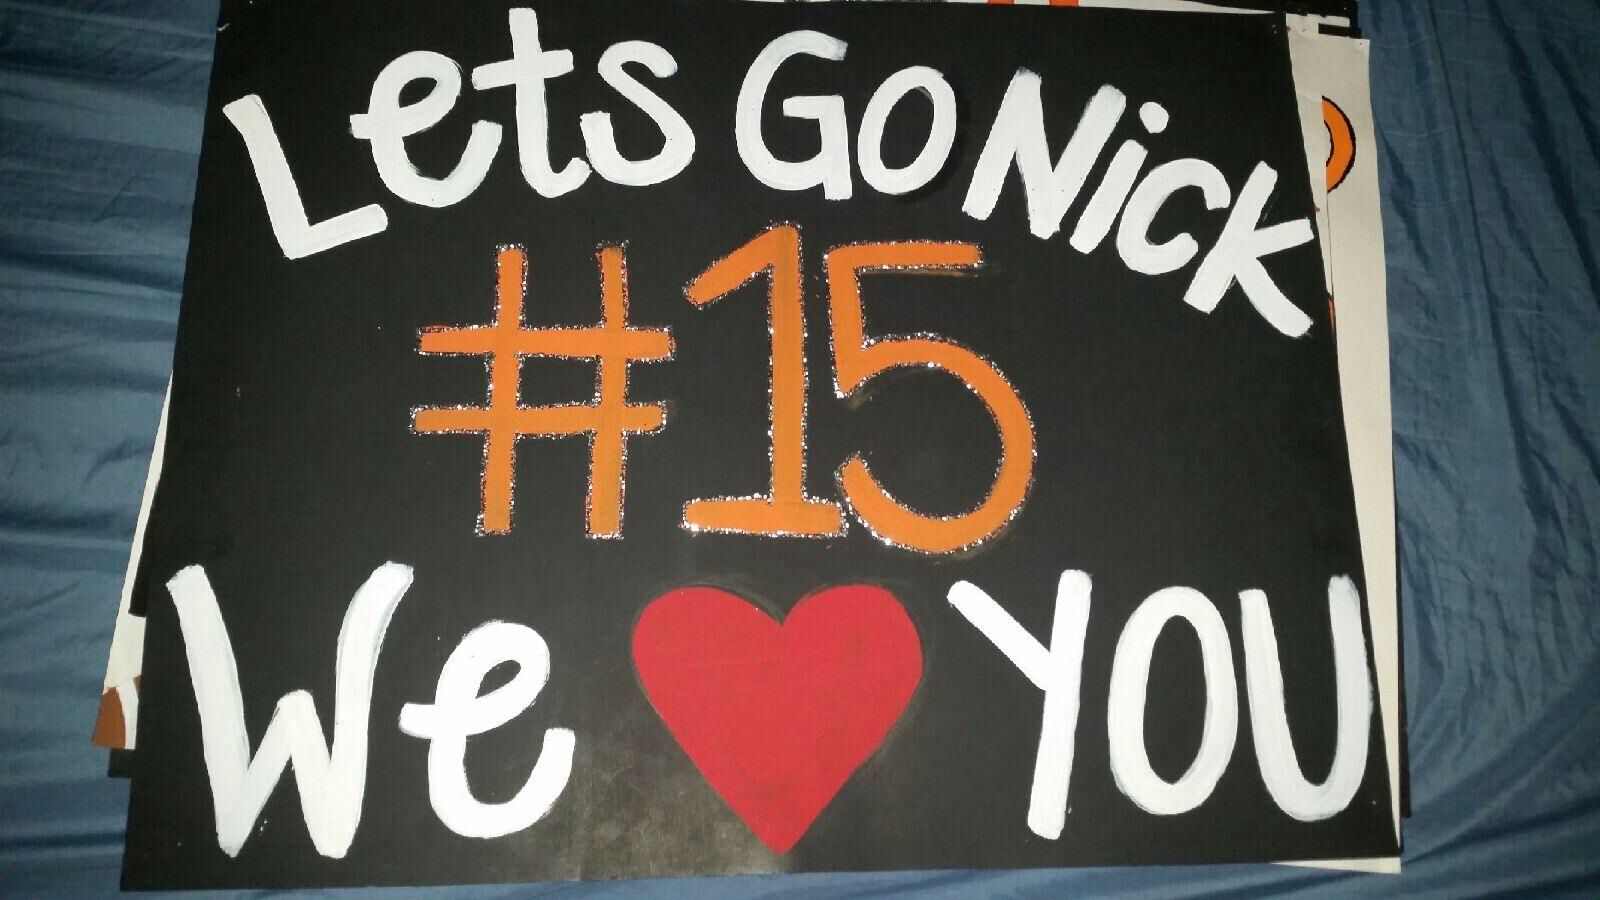 Lets Go Nick
#15
We ❤ YOU